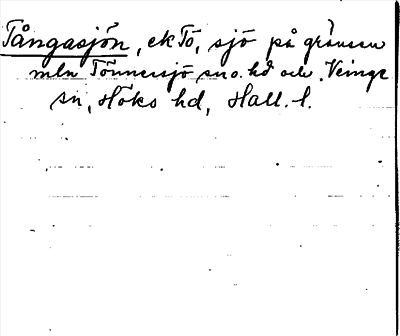 Tångasjön, ek Tö, sjö på gränsen
mln Tönnersjö sn o. hd och Veinge
sn, Höks hd, Hall. l.